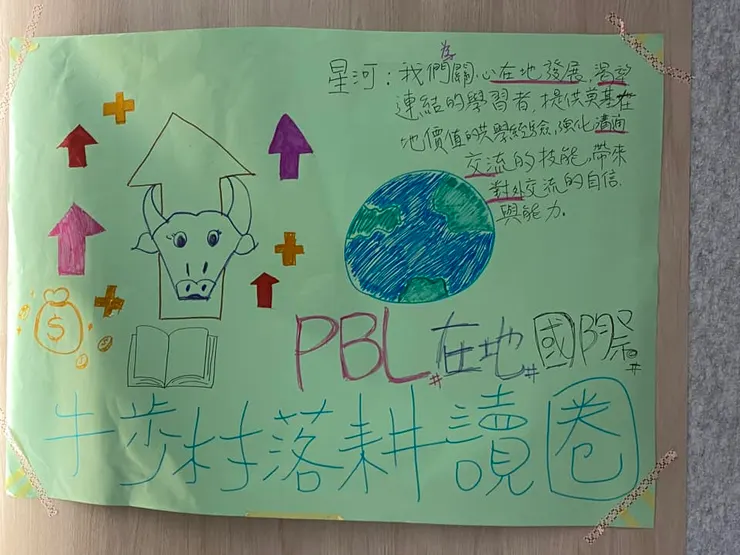 星河：我們為關心在地發展,渴望
連結的學習者,提供奠基在
地價值的共學經驗,強化溝通
交流的技能,帶來
對外交流的自信
與能力.
$
PBL #在地 #國際 #
牛步村落耕讀圈